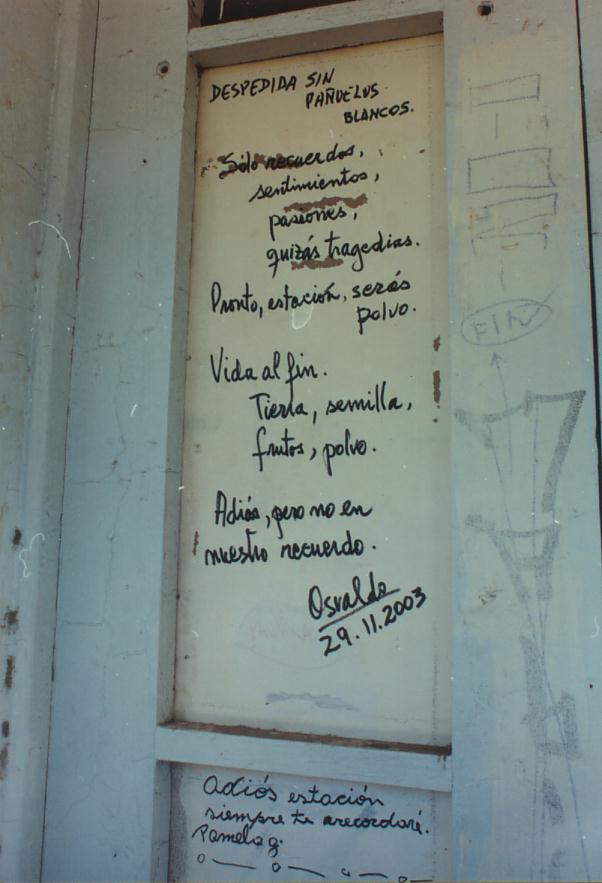 DESPEDIDA SIN
PAÑUELOS
BLANCOS.
Sólo recuerdos,
sentimientos,
pasiones,
quizás tragedias.
Pronto, estación, serás
polvo.
Vida al fin.
Tierra, semilla,
frutos, polvo.
Adiós, pero no en
nuestro recuerdo.
Osvaldo
29.11.2003
adiós estación
siempre te arecordaré.
Pamela g.
FIN